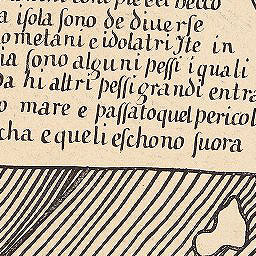 becco
a isola sono de diuerse
ometani e idolatri Jte in
ia sono alguni pessi i quali
da hi altri pessi grandi entra
o mare e passato quel pericol
cha e queli eschono fuora